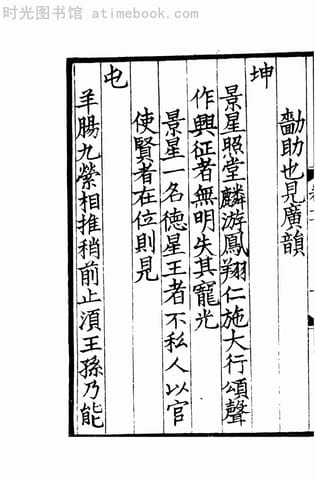 时光图书馆 atimebook.com
勴助也見廣韻
坤
景星照堂麟游鳳翔仁施大行頌聲
作興征者無明失其寵光
景星一名徳星王者不私人以官
使賢者在位則見
屯
羊膓九縈相推稍前止湏王孫乃能